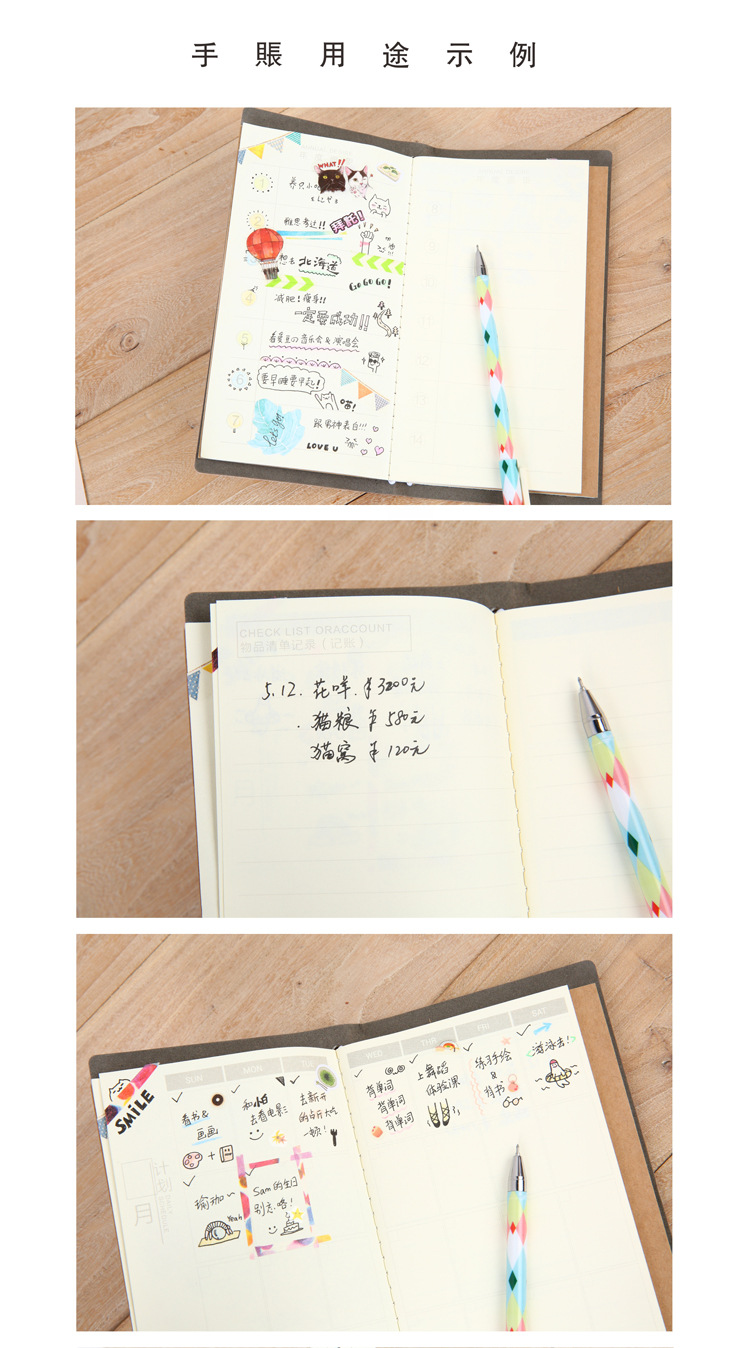 手賬用途示例
WHAT?!
1
养只小
雅思考过!!
拜託!
想去北海道
GO GO GO!
4
减肥!瘦手!!
一定要成功!!
5
看爱豆の音乐会&演唱会
6
要早睡要早起!
喵!
7
Let's go!
跟男神表白!!!
LOVE U
CHECK LIST ORACCOUNT
物品清单记录(记账)
5.12. 花咩. ¥3200元
. 猫粮 ¥ 580元
猫窝 ¥ 120元
SMiLE
SUN
MON
WED
THR
FRI
SAT
看书&
画画
和小白
去看电影
去新开
的
吃
一顿!
背单词
背单词
背单词
上舞蹈
体验课
练习手绘
&
背书
游泳去!
计划
月
瑜珈~
Yeah
Sam的生日
别忘咯!